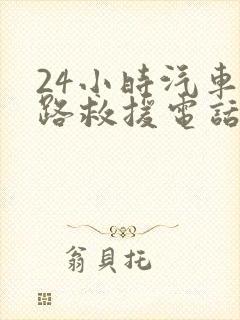 24小時汽車
路救援電話
翁貝托